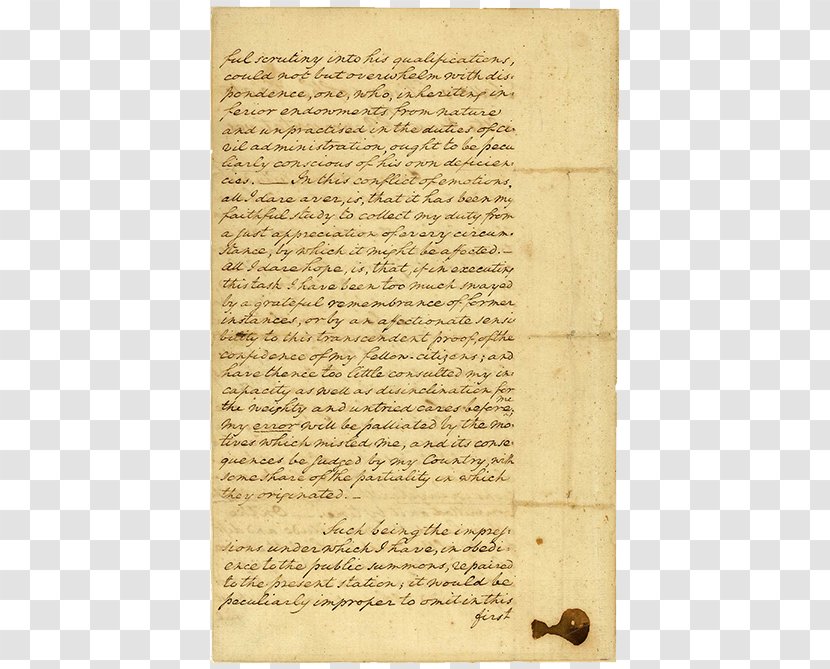 ful scrutiny into his qualifications,
could not but overwhelm with dis-
pondence, one, who, inheriting in-
ferior endowments from nature
and unpractised in the duties of ci-
vil administration, ought to be pecu
liarly conscious of his own deficien-
cies. — In this conflict of emotions,
all I dare aver, is, that it has been my
faithful study to collect my duty from
a just appreciation of every circum-
stance, by which it might be affected. —
All I dare hope, is, that, if in executing
this task I have been too much swayed
by a grateful remembrance of former
instances, or by an affectionate sensi
bility to this transcendent proof, of the
confidence of my fellow-citizens; and
have thence too little consulted my in
capacity as well as disinclination for
the weighty and untried cares before me,
my error will be palliated by the mo-
tives which misled me, and its conse-
quences be judged by my Country, with
some share of the partiality in which
they originated. —
Such being the impres-
sions under which I have, in obedi-
ence to the public summons, repaired
to the present station; it would be
peculiarly improper to omit in this
first